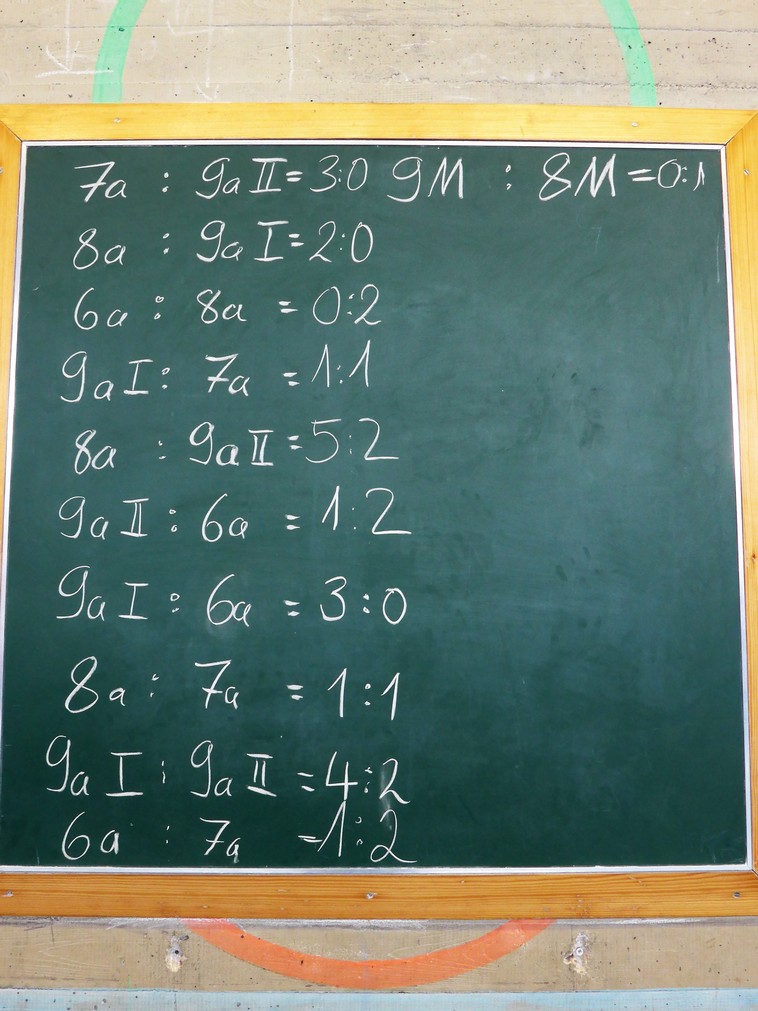 7a : 9a II = 3:0 9M : 8M = 0:1
8a : 9a I = 2:0
6a : 8a = 0:2
9a I : 7a = 1:1
8a : 9a II = 5:2
9a II : 6a = 1:2
9a I : 6a = 3:0
8a : 7a = 1:1
9a I : 9a II = 4:2
6a : 7a = 1:2